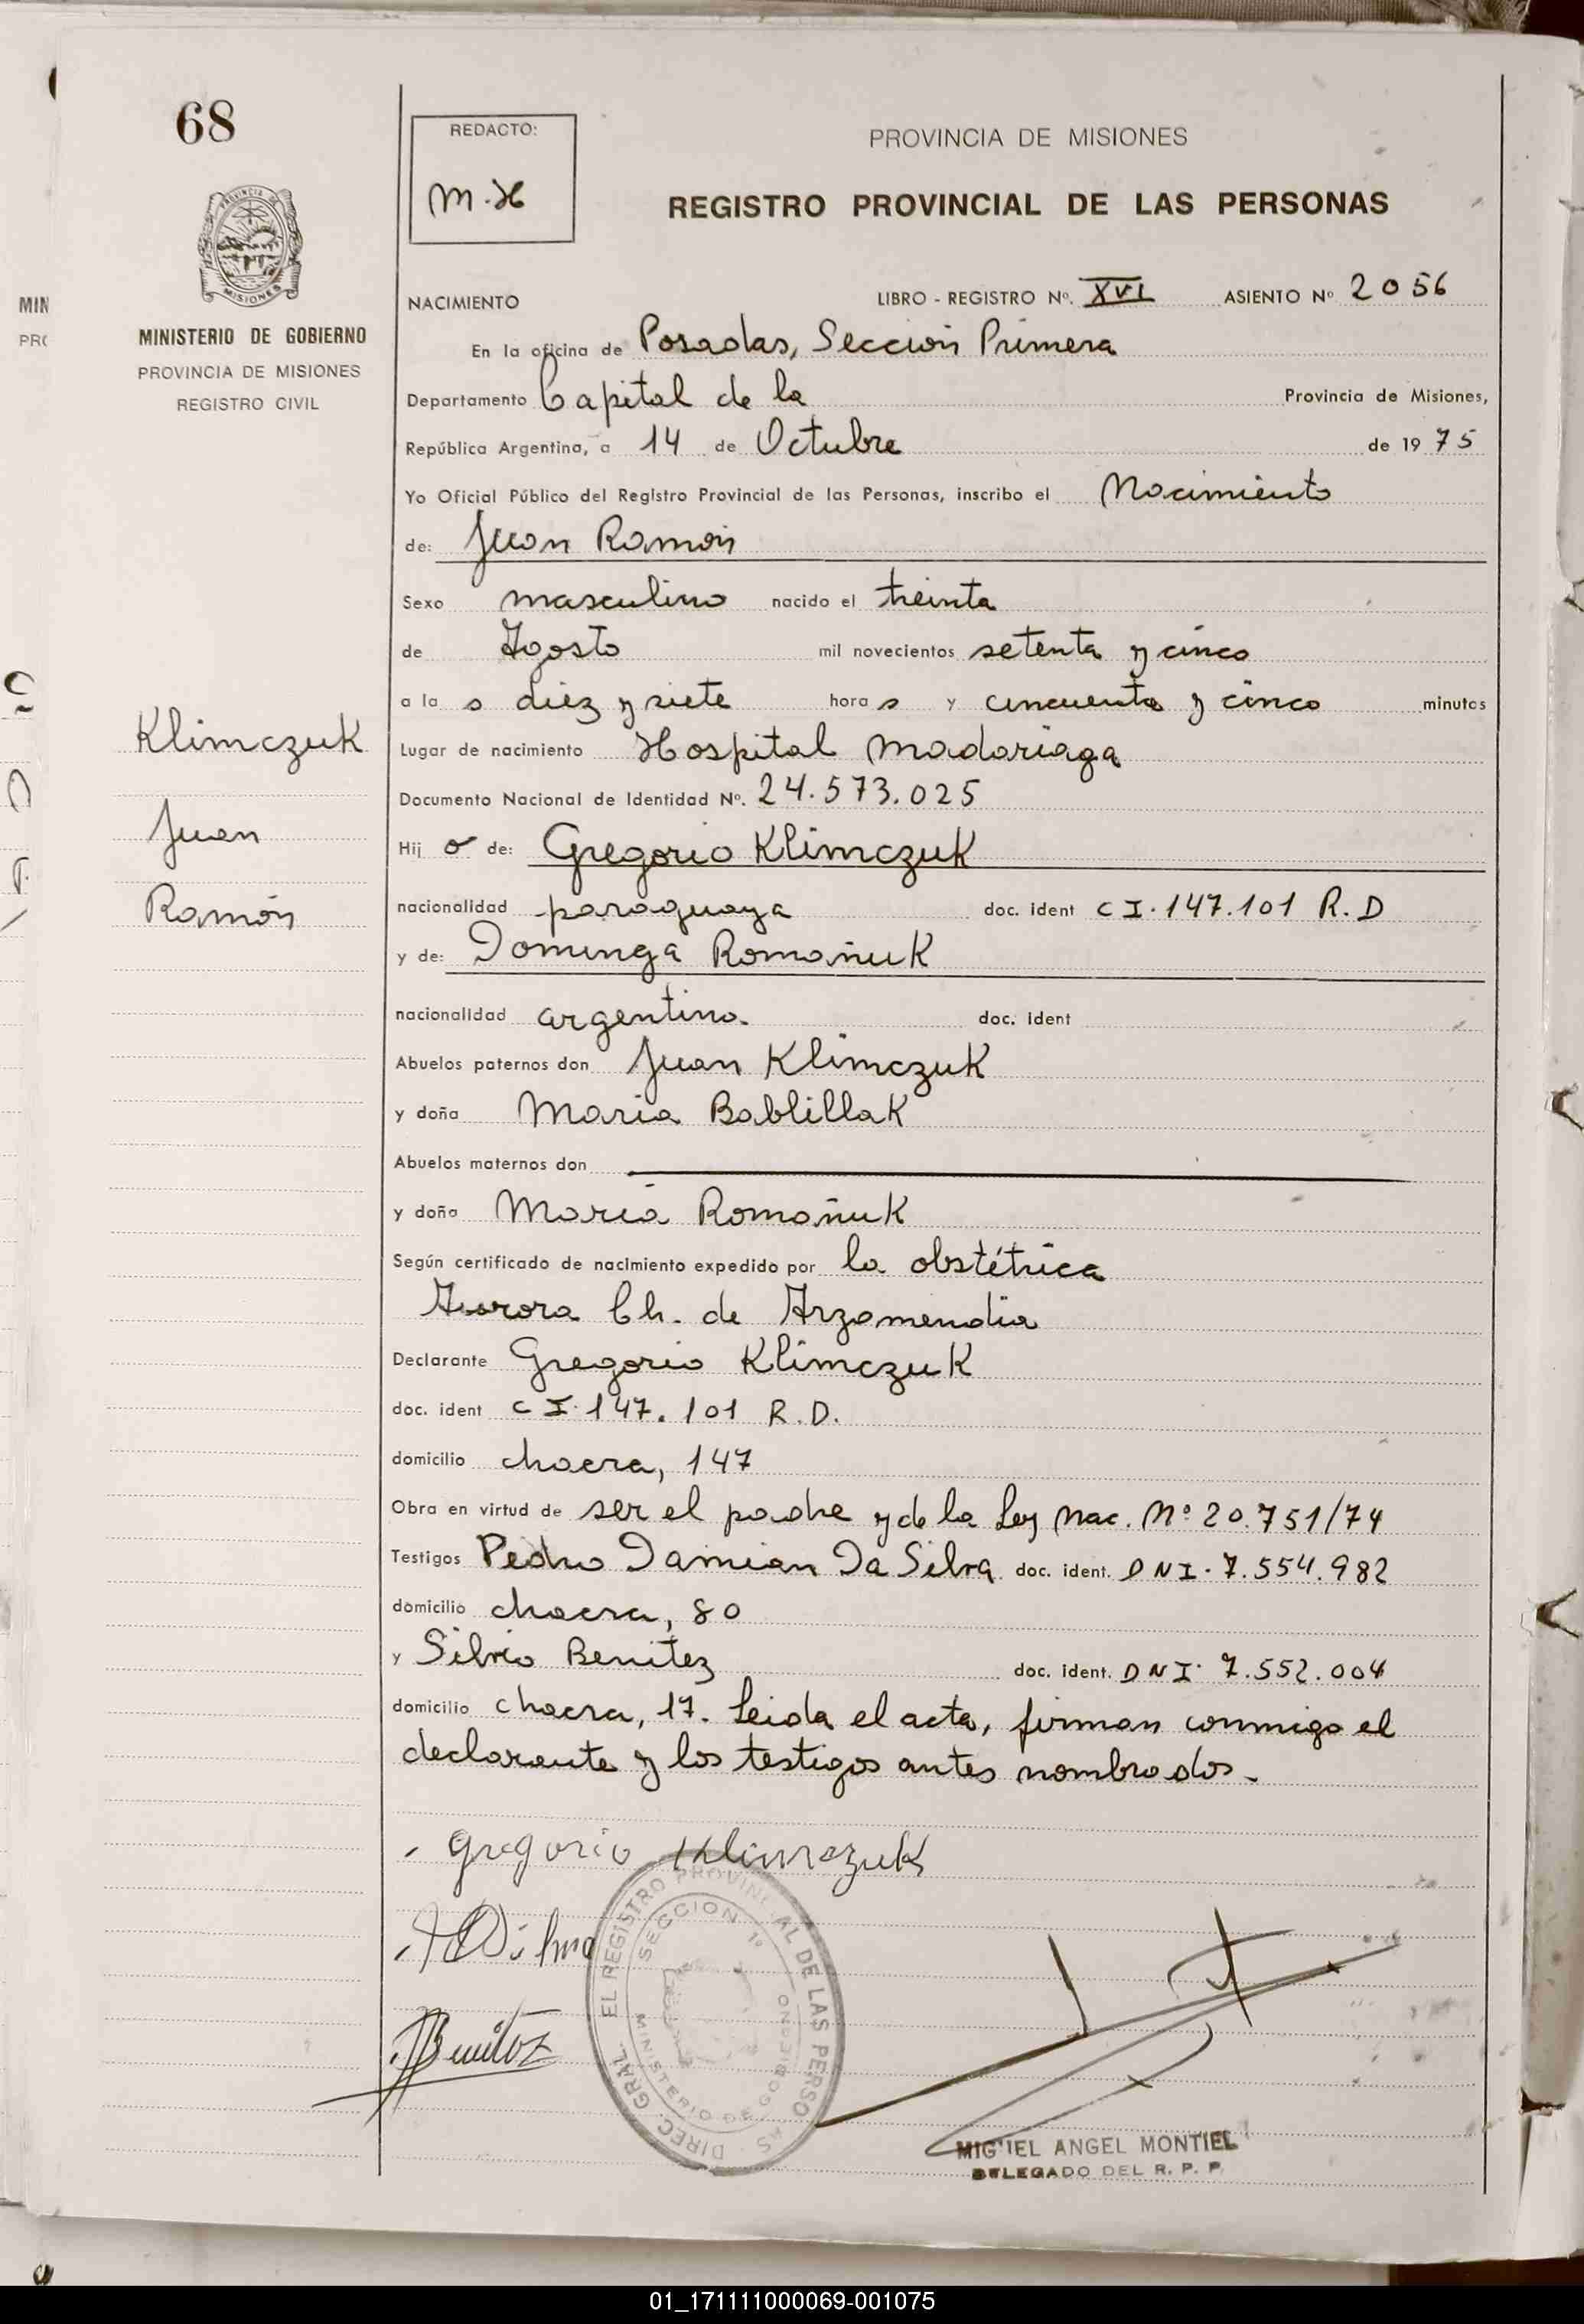 68
REDACTO:
M.H
PROVINCIA DE MISIONES
REGISTRO PROVINCIAL DE LAS PERSONAS
PROVINCIA
MISIONES
MINISTERIO DE GOBIERNO
PROVINCIA DE MISIONES
REGISTRO CIVIL
MIN
PRO
NACIMIENTO LIBRO - REGISTRO Nº. XVI ASIENTO Nº 2056
En la oficina de Posadas, Sección Primera
Departamento Capital de la Provincia de Misiones,
República Argentina, a 14 de Octubre de 1975
Yo Oficial Público del Registro Provincial de las Personas, inscribo el Nacimiento
de: Juan Ramón
Sexo masculino nacido el treinta
de Agosto mil novecientos setenta y cinco
a la s diez y siete hora s y cincuenta y cinco minutos
Klimczuk
Juan
Ramón
Lugar de nacimiento Hospital Madariaga
Documento Nacional de Identidad Nº. 24.573.025
Hij o de: Gregorio Klimczuk
nacionalidad paraguaya doc. ident C I. 147.101 R.D
y de: Dominga Romañuk
nacionalidad argentina. doc. ident
Abuelos paternos don Juan Klimczuk
y doña Maria Bablillak
Abuelos maternos don
y doña María Romañuk
Según certificado de nacimiento expedido por la obstétrica
Aurora Ch. de Arzamendia
Declarante Gregorio Klimczuk
doc. ident C I. 147.101 R.D.
domicilio chacra, 147
Obra en virtud de ser el padre y de la Ley Nac. Nº 20.751/74
Testigos Pedro Damian Da Silva doc. ident. DNI. 7.554.982
domicilio chacra, 80
y Silvio Benitez doc. ident. DNI. 7.552.004
domicilio chacra, 17. Leida el acta, firman conmigo el
declarante y los testigos antes nombrados.
Gregorio Klimczuk
Benitez
DIREC. GRAL. EL REGISTRO PROVINCIAL DE LAS PERSONAS
SECCION 1º
MINISTERIO DE GOBIERNO
MIGUEL ANGEL MONTIEL
DELEGADO DEL R. P. P.
01_171111000069-001075